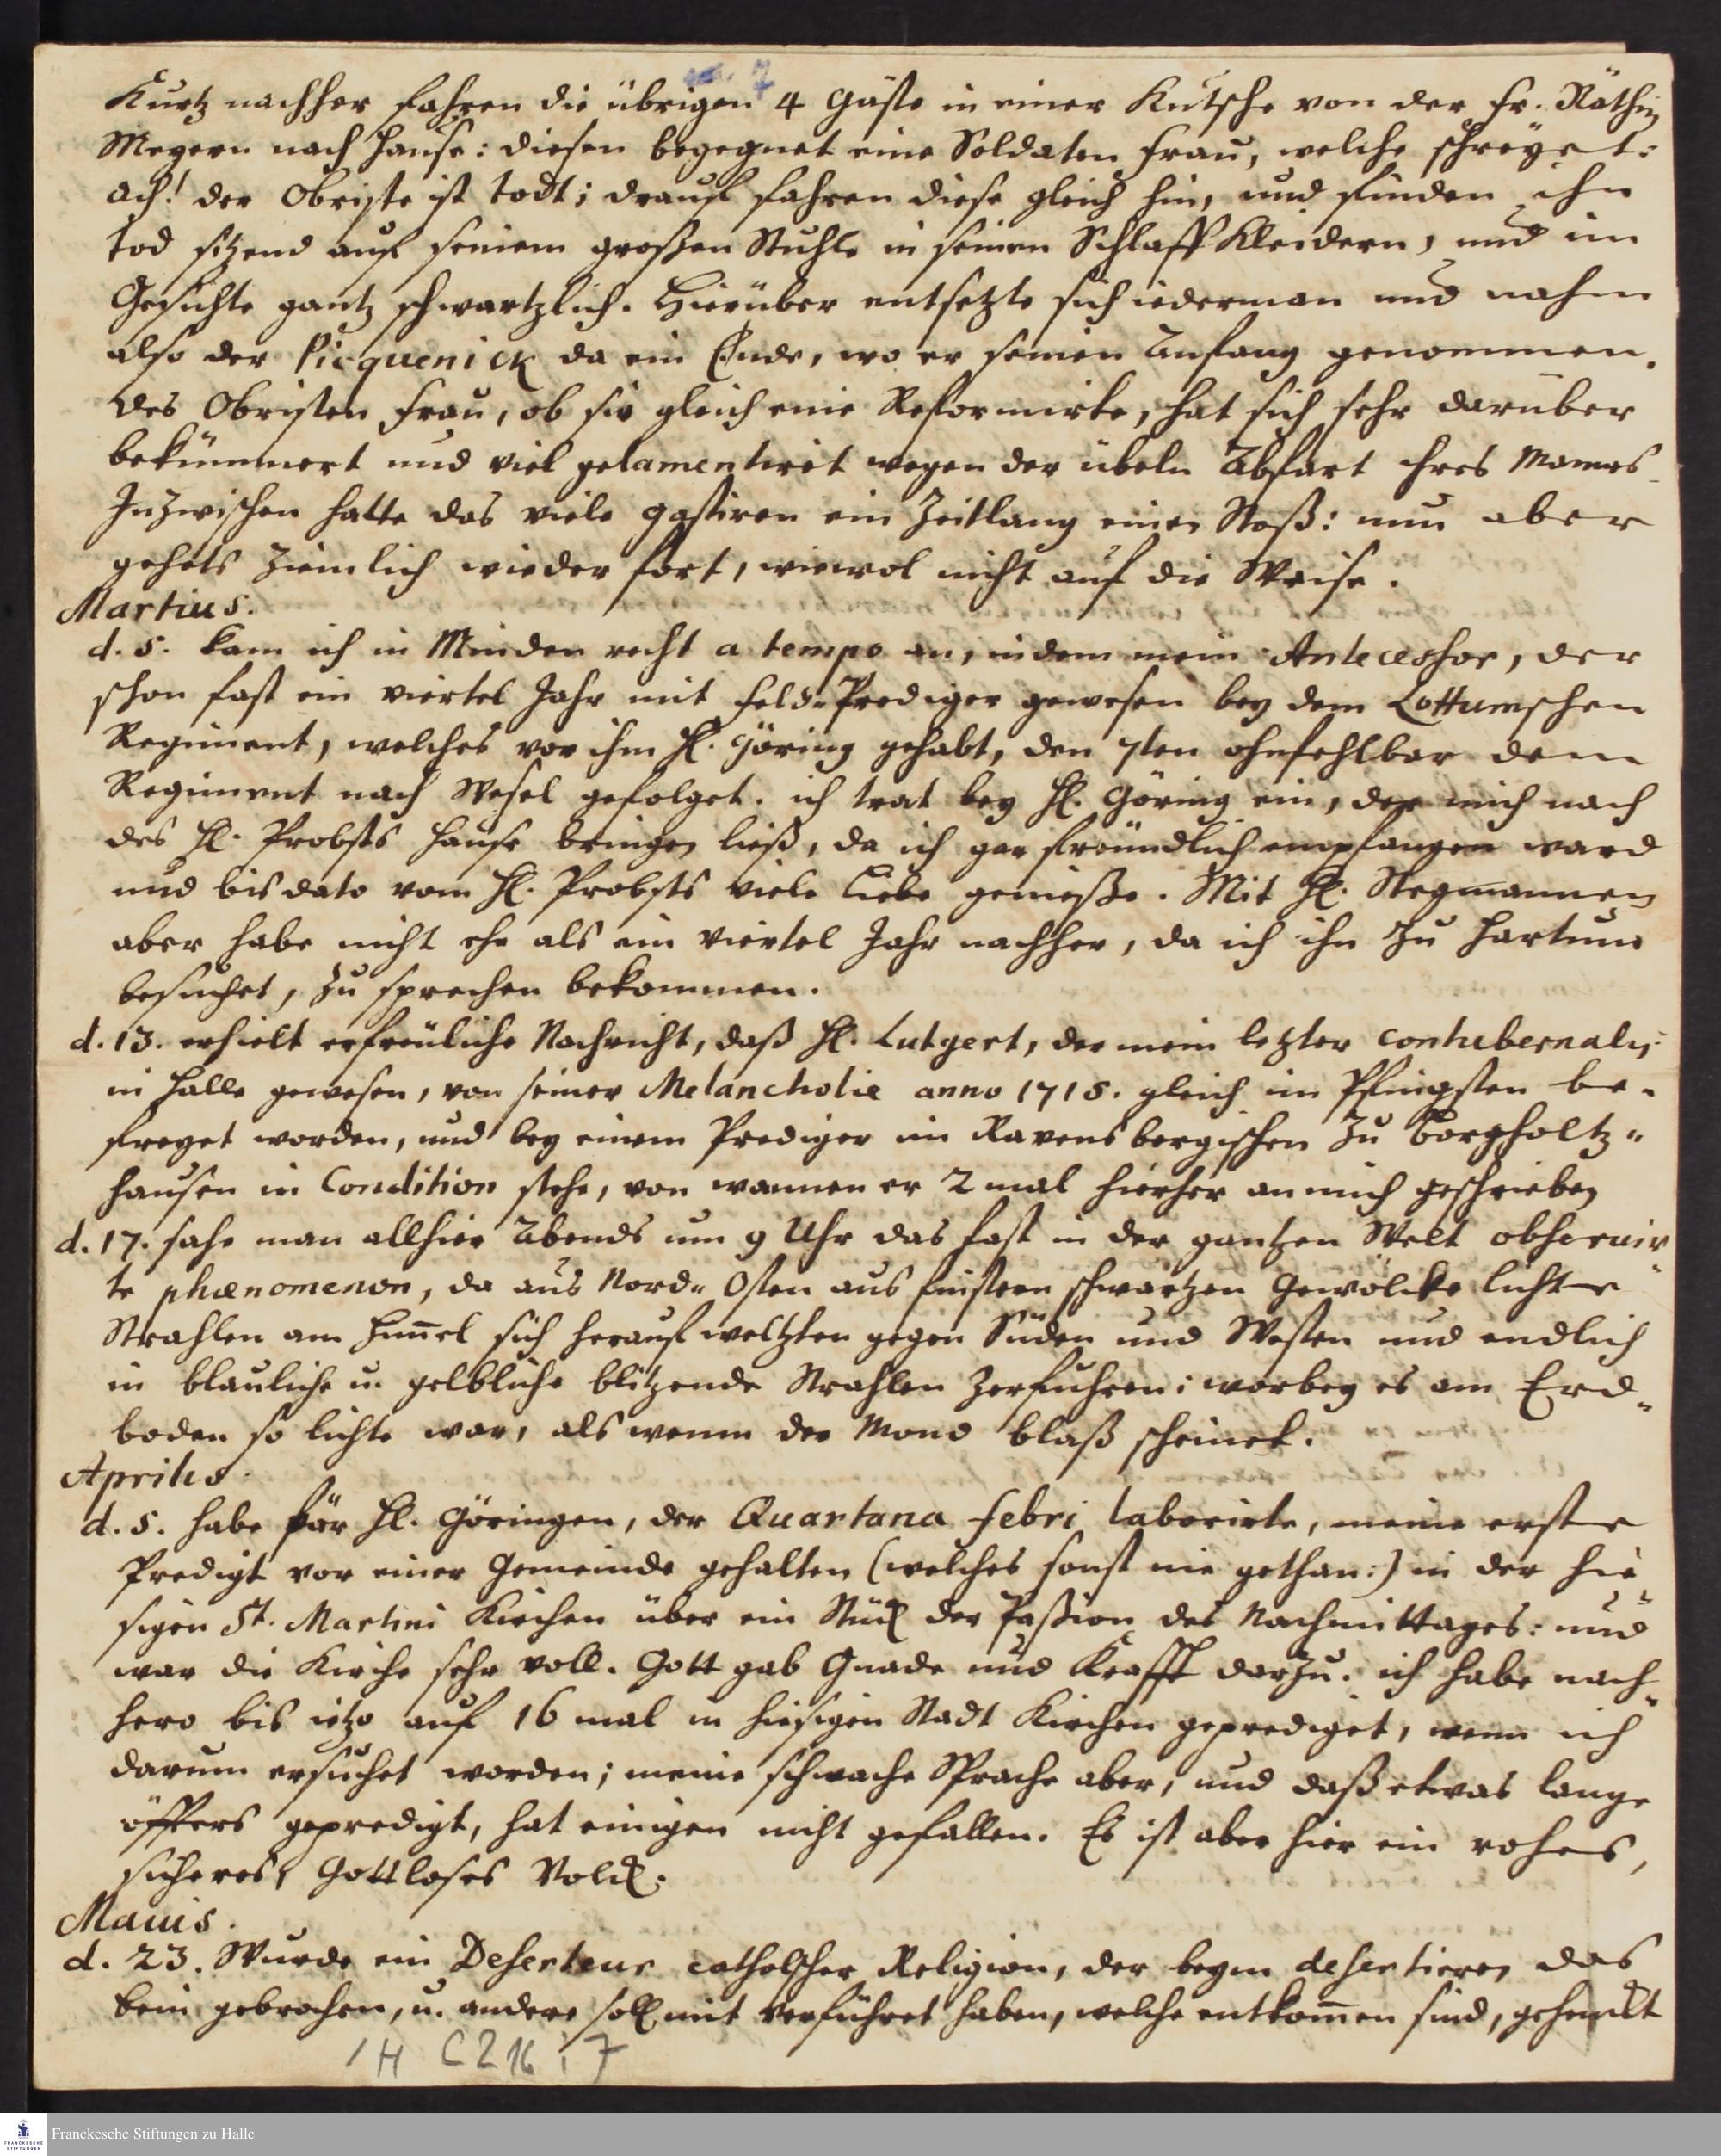 Kurtz nachher fahren die übrigen 4 Gäste in einer Kutsche von der Fr. Räthin
Meyern nach Hause: diesen begegnet eine Soldaten Frau, welche schreyet:
ach! der Obriste ist todt; drauf fahren diese gleich hin, und finden ihn
tod sitzend auf seinem großen Stuhle in seinen Schlaff Kleidern, und im
Gesichte gantz schwartzlich. Hierüber entsetzte sich iederman und nahm
also der Picquenick da ein Ende, wo er seinen Anfang genommen.
Des Obristen Frau, ob sie gleich eine Reformirte, hat sich sehr darüber
bekümmert und viel gelamentiret wegen der übeln Abfart ihres Mannes
Inzwischen hatte das viele gastiren ein Zeitlang einen Stoß: nun aber
gehets ziemlich wieder fort, wiewol nicht auf die Weise.
Martius.
d. 5. kam ich in Minden recht a tempo an, indem mein Antecessor, der
schon fast ein viertel Jahr mit Feld-Prediger gewesen bey dem Lottumschen
Regiment, welches vor ihm H. Göring gehabt, den 7ten ohnfehlbar dem
Regiment nach Wesel gefolget. ich trat bey H. Göring ein, der mich nach
des H. Probsts Hause bringen ließ, da ich gar freündlich empfangen ward
und bis dato vom H. Probsts viele Liebe genieße. Mit H. Stegmannen
aber habe nicht ehe als ein viertel Jahr nachher, da ich ihn zu Hartum
besuchet, zu sprechen bekommen.
d. 13. erhielt erfreuliche Nachricht, daß H. Lutgert, der mein letzter contubernalis
in Halle gewesen, von seiner Melancholie anno 1715. gleich im Pfingsten be-
freyet worden, und bey einem Prediger im Ravensbergischen zu Borgholtz-
hausen in Condition stehe, von wannen er 2 mal hierher an mich geschrieben
d. 17. sahe man allhier Abends um 9 Uhr das fast in der gantzen Welt observir
te phænomenon, da aus Nord-Osten aus finstern schwartzen Gewölcke lichte
Strahlen am Himel sich herauf weltzten gegen Süden und Westen und endlich
in blauliche u. gelbliche blitzende Strahlen zerfuhren; worbey es am Erd-
boden so lichte war, als wenn der Mond blaß scheinet.
Aprilis.
d. 5. habe für H. Göringen, der Quartana febri laborirte, meine erste
Predigt vor einer Gemeinde gehalten (welches sonst nie gethan:) in der hie-
sigen St. Martini Kirchen über ein Stück der Paßion des Nachmittages: und
war die Kirche sehr voll. Gott gab Gnade und Krafft darzu. ich habe nach-
hero bis itzo auf 16 mal in hiesigen Stadt Kirchen geprediget, wenn ich
darum ersuchet worden; meine schwache Sprache aber, und daß etwas lange
öffters gepredigt, hat einigen nicht gefallen. Es ist aber hier ein rohes,
sicheres, Gottloses Volck.
Maius.
d. 23. Wurde ein Deserteur catholscher Religion, der beym desertieren das
bein gebrochen, u. andere soll mit verführet haben, welche entkomen sind, gehenckt
1H C216 : 7
Franckesche Stiftungen zu Halle
FRANCKESCHE
STIFTUNGEN